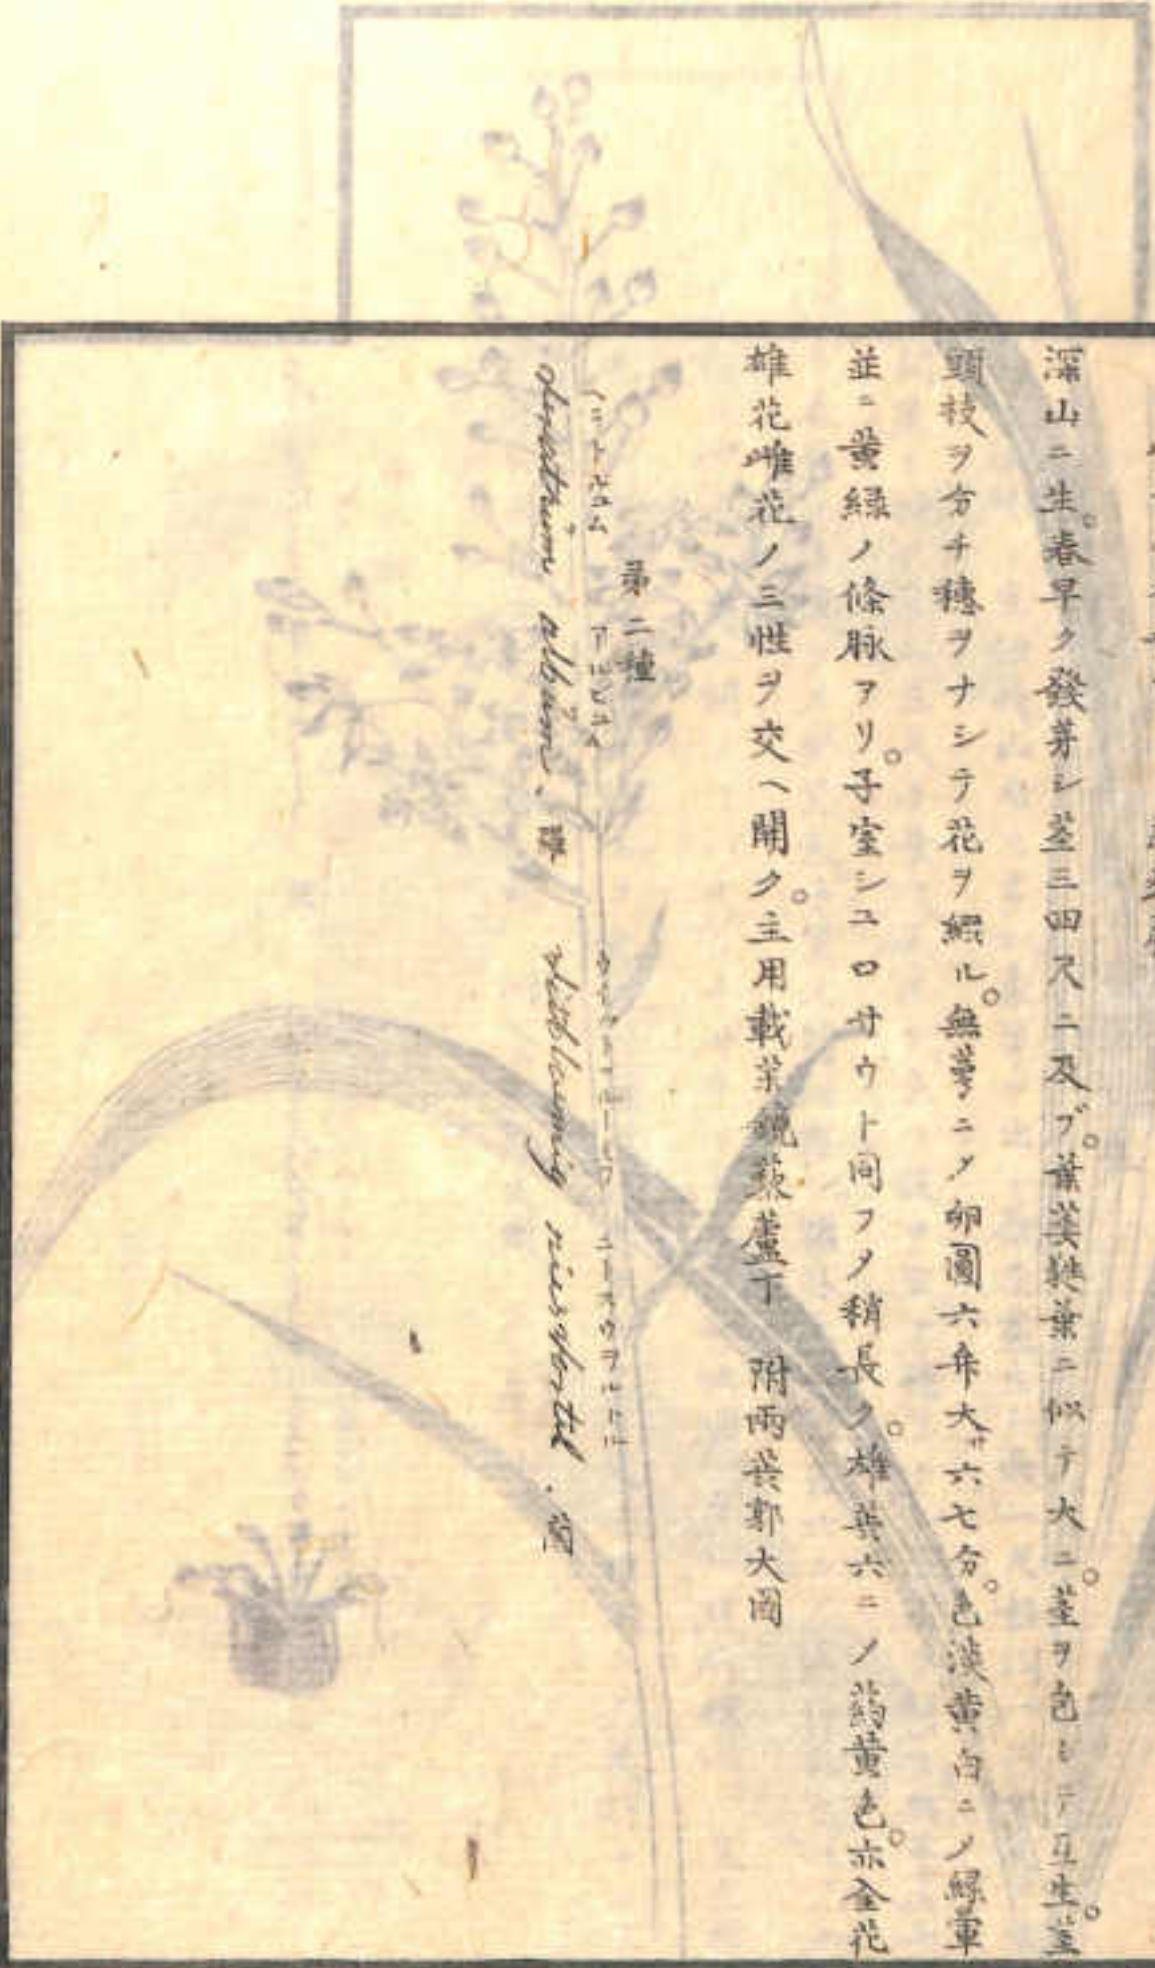 深山ニ生。春早ク發芽シ莖三四尺ニ及ブ。葉萎蕤葉ニ似テ大ニ。莖ヲ包シテ互生。莖
頭枝ヲ分チ穗ヲナシテ花ヲ綴ル。無萼ニノ卵圓六弁大サ六七分。色淡黄白ニノ緑暈
並ニ黄緑ノ條脉アリ。子室シユロサウト同フノ稍長ク。雄蕊六ニノ葯黄色。亦全花
雄花雌花ノ三性ヲ交ヘ開ク。主用載菜 藜蘆下 附兩蕊郭大圖
第二種
ヘラトルユム アルビユム
Veratrum album. 羅 witbloemig nieswortel. 蘭